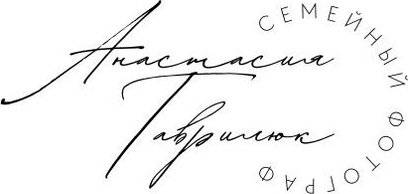 Анастасия
Гаврилюк
СЕМЕЙНЫЙ ФОТОГРАФ